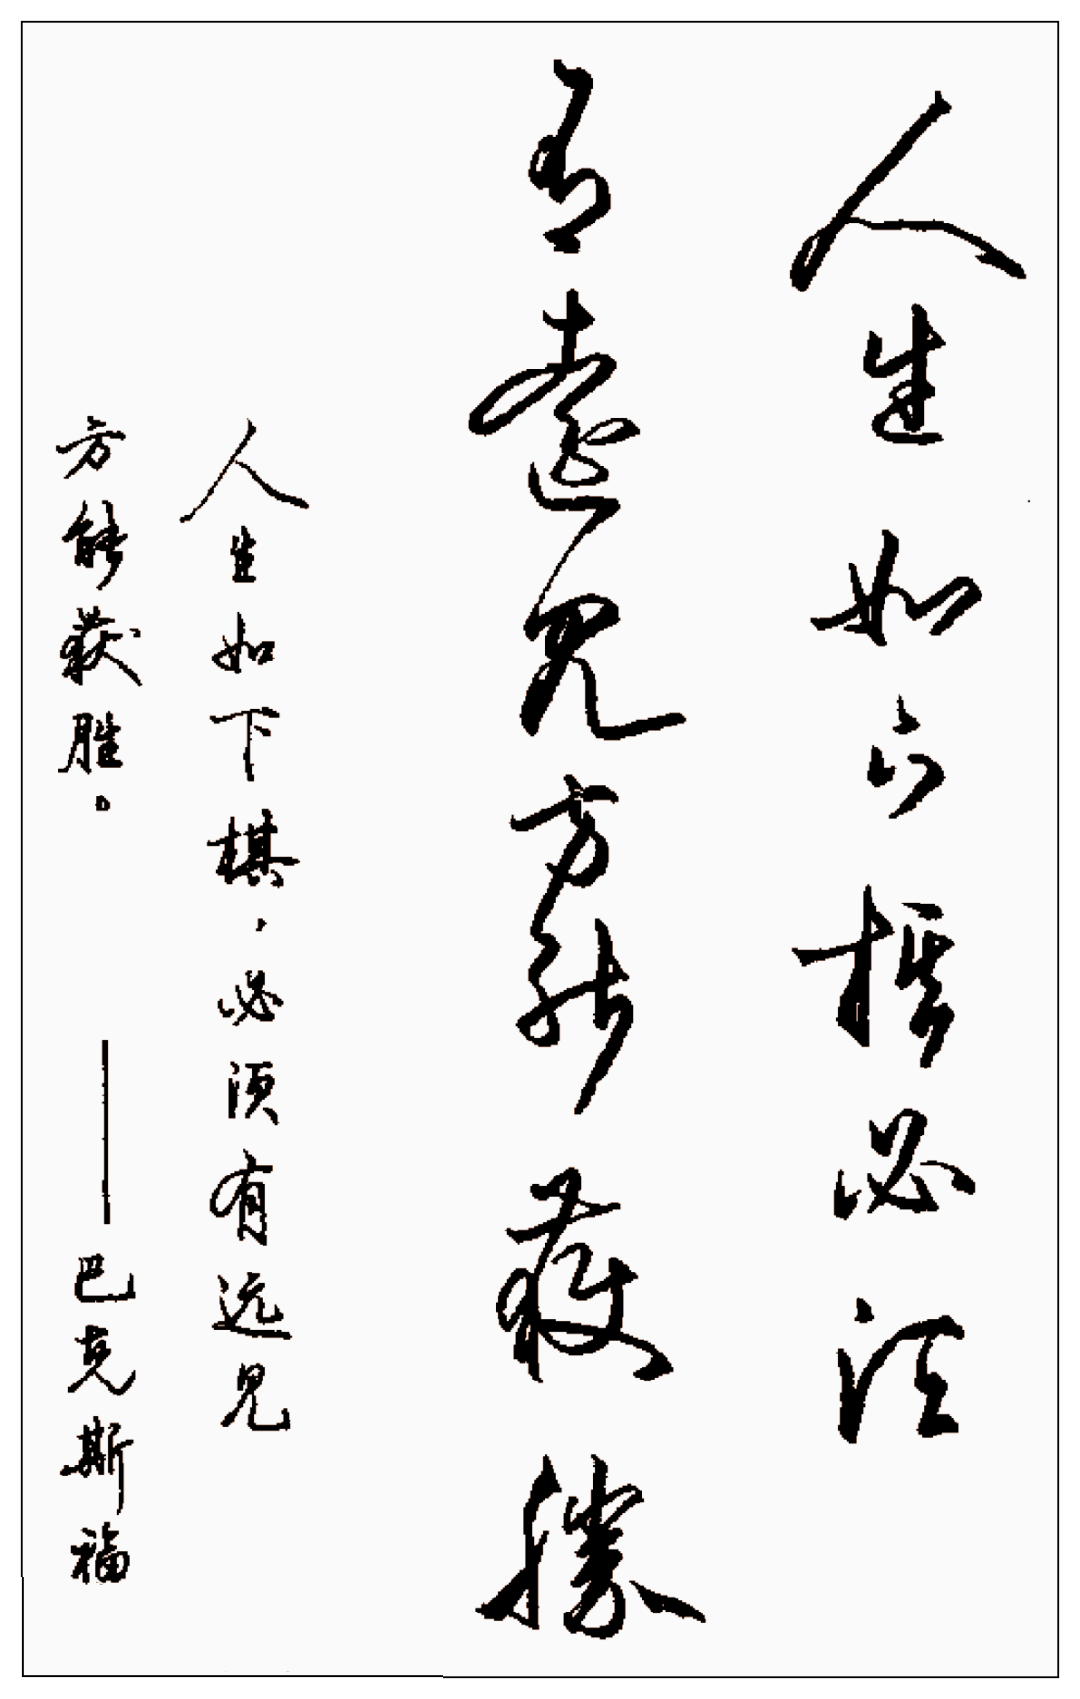 人生如下棋必须
有遠见方能獲勝
人生如下棋，必须有远见
方能获胜。——巴克斯福